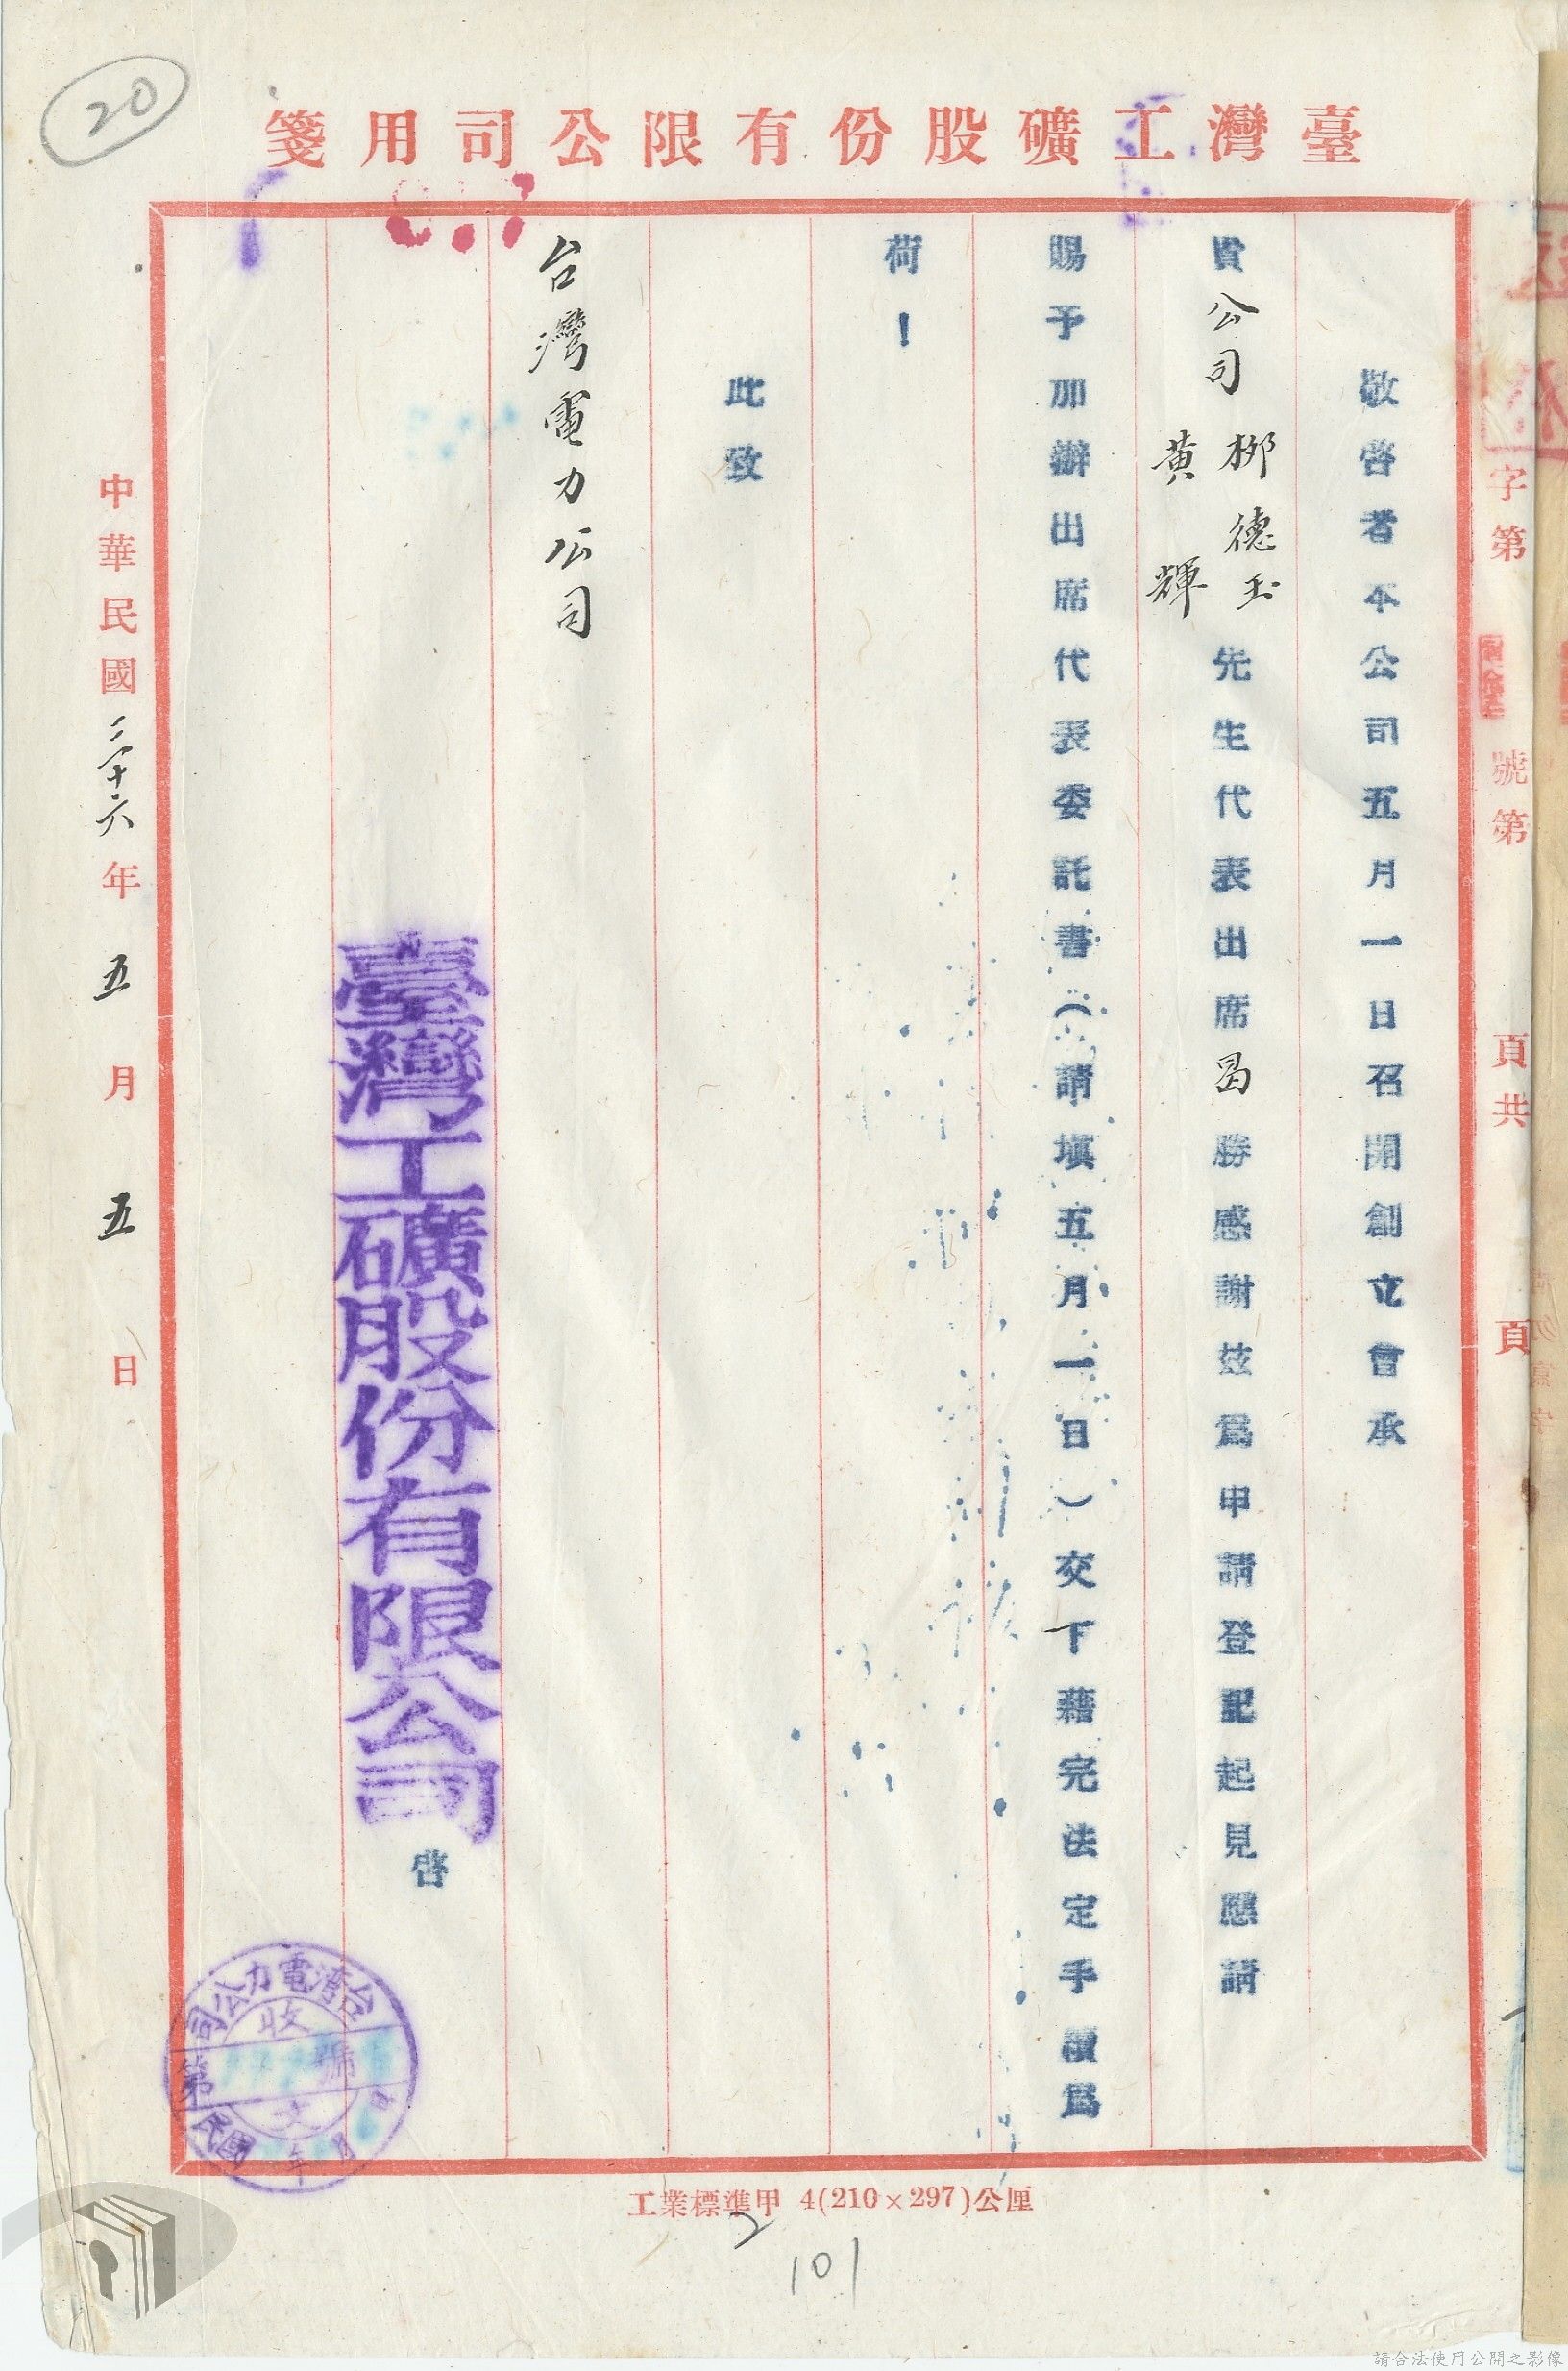 20
臺灣工礦股份有限公司用箋
字第 號第 頁共 頁
敬啓者本公司五月一日召開創立會承
貴公司柳德玉
黄輝
先生代表出席曷勝感謝玆爲申請登記起見應請
賜予加辦出席代表委託書（請填五月一日）交下藉完法定手續爲
荷！
此致
台灣電力公司
臺灣工礦股份有限公司
啓
中華民國三十六年五月五日
台灣電力公司
收
第 號
文
民國 年 月 日
工業標準甲 4(210×297)公厘
2
101
請合法使用公開之影像